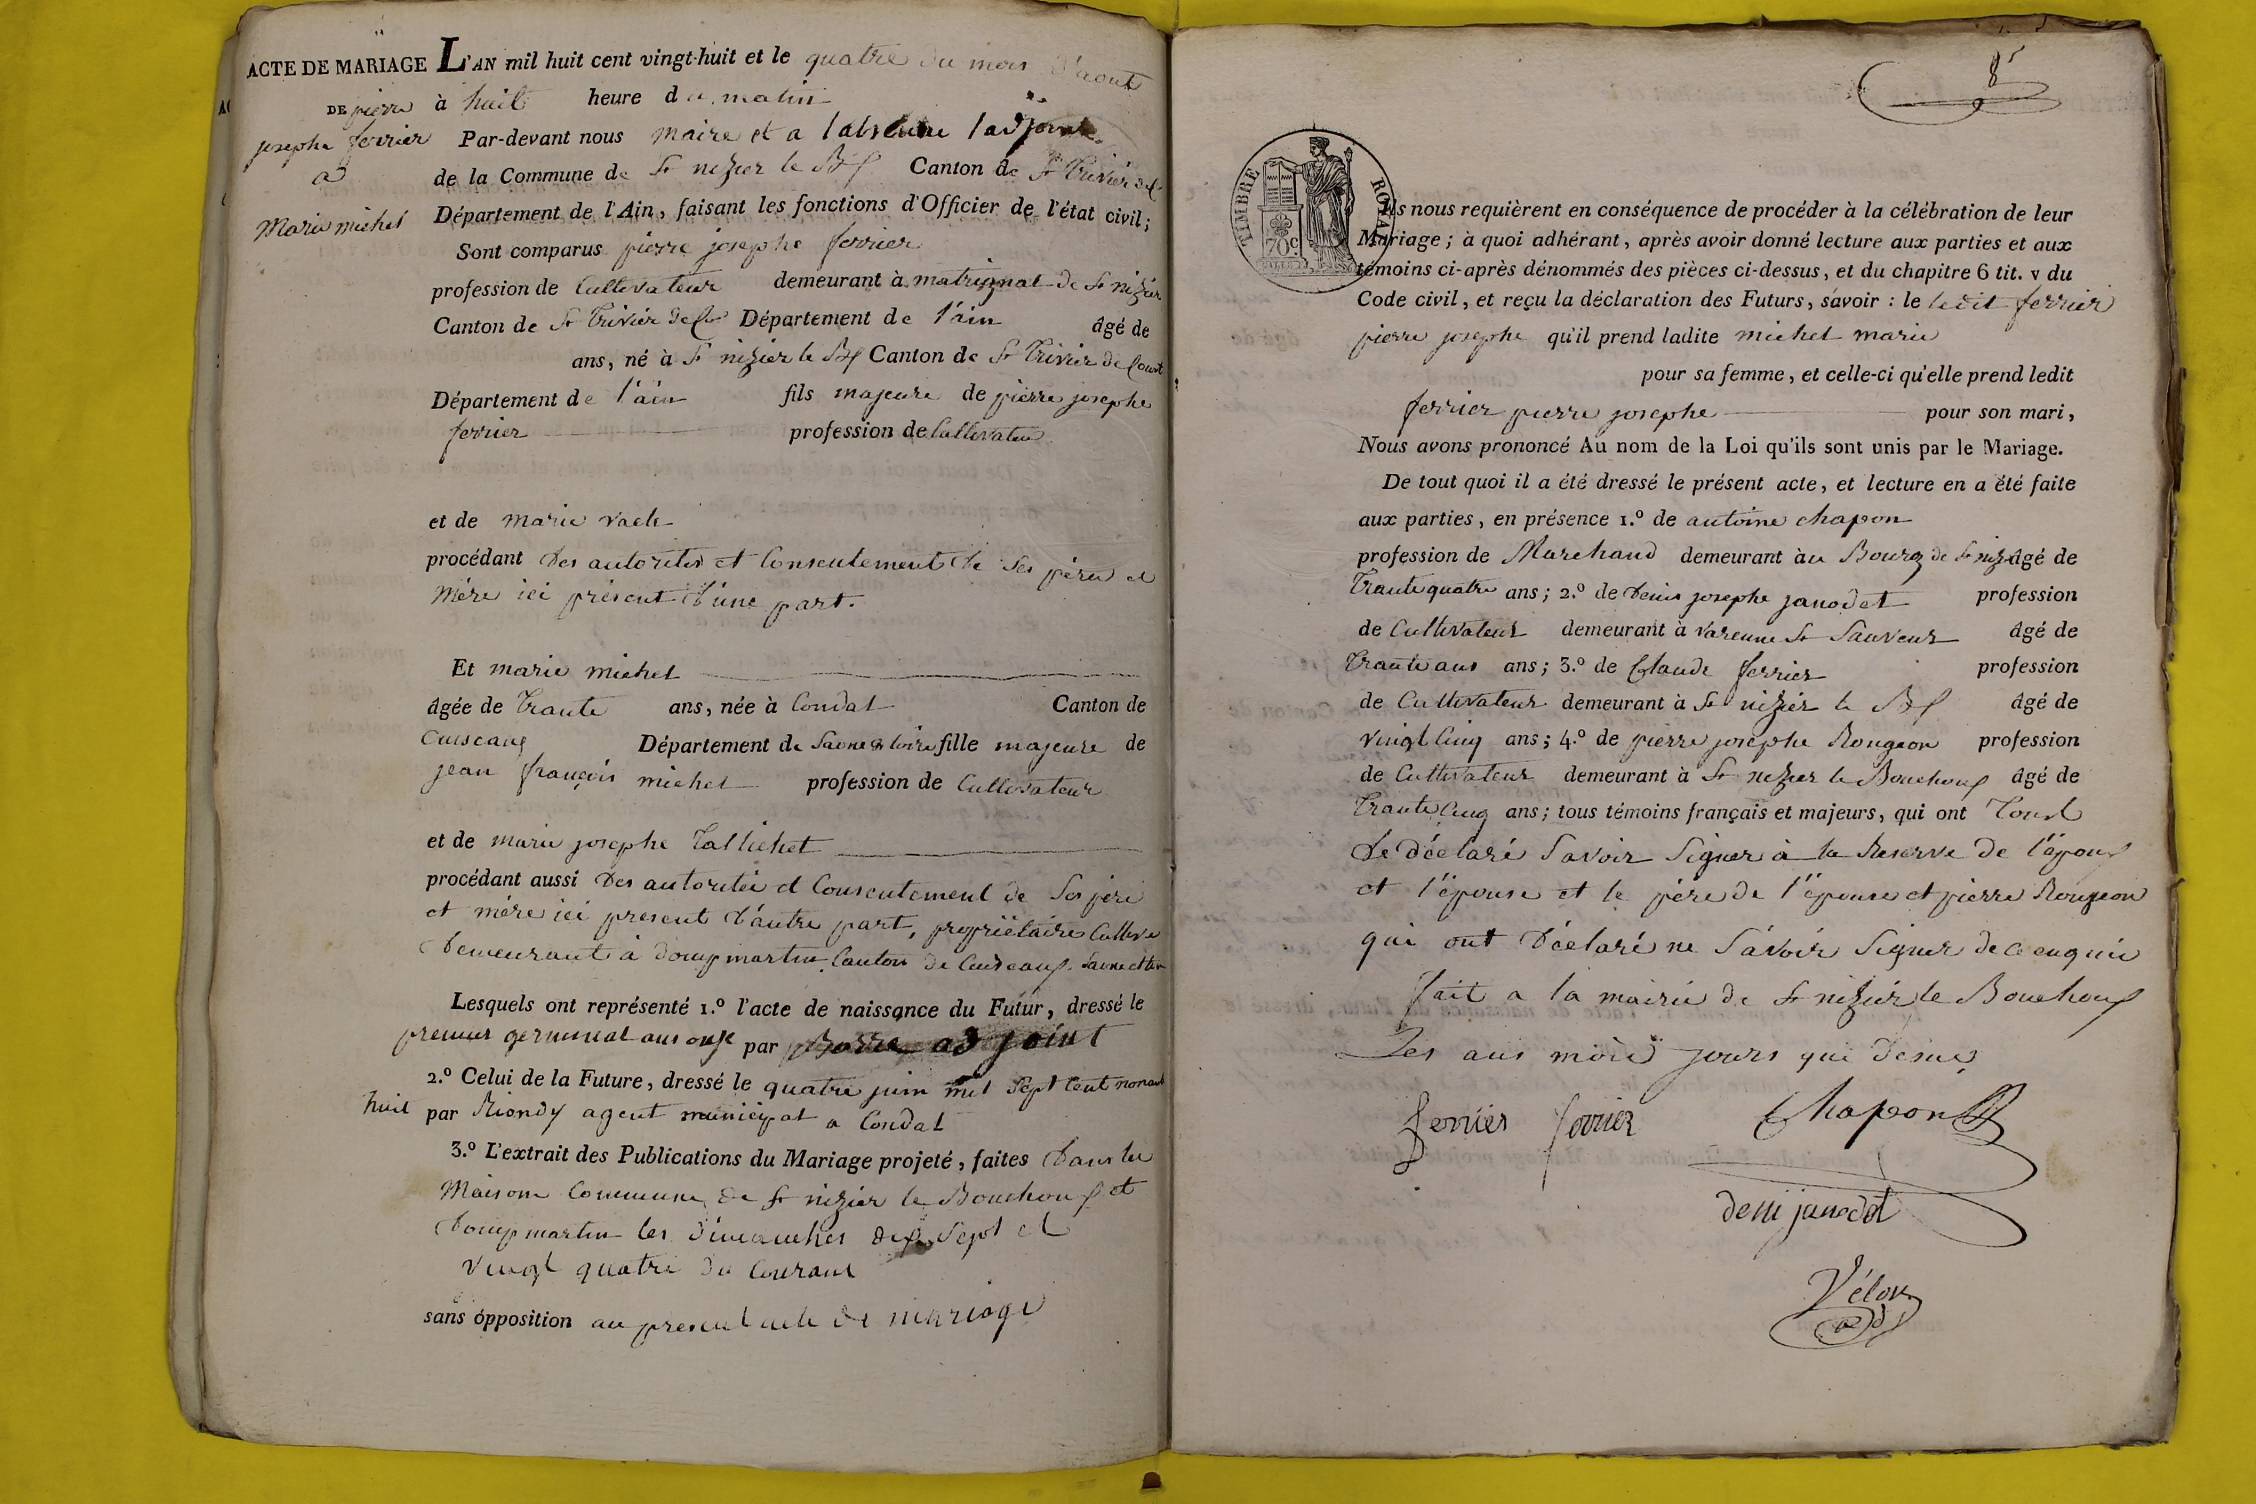 ACTE DE MARIAGE L'AN mil huit cent vingt-huit et le quatre du mois d'aout
DE pierre à huit heure du matin
josephe ferrier Par-devant nous maire et a l'absence l'adjoint
a de la Commune de St nizier le Bx Canton de St Trivier de C
Marie michel Département de l'Ain, faisant les fonctions d'Officier de l'état civil;
Sont comparus pierre josephe ferrier
profession de Cultivateur demeurant à matrignat de St nizier
Canton de St Trivier de C Département de l'ain âgé de
ans, né à St nizier le Bx Canton de St Trivier de Court
Département de l'ain fils majeure de pierre josephe
ferrier profession de Cultivateur
et de marie vacle
procédant des autorités et Consentement de ses père et
mère ici présent d'une part.
Et marie michel
âgée de Trante ans, née à Condal Canton de
Cuiseaux Département de Saone et loire fille majeure de
jean françois michel profession de Cultivateur
et de marie josephe Tallichet
procédant aussi des autorités et Consentement de Ses père
et mère ici present d'autre part, propriètaire Cultiva
demeurant à dompmartin Canton de Cuiseaux Saone et loir
Lesquels ont représenté 1.º l'acte de naissance du Futur, dressé le
premier germinal ans onze par adjoint
2.º Celui de la Future, dressé le quatre juin mil Sept Cent nonant
huit par Riondy agent municipal a Condal
3.º L'extrait des Publications du Mariage projeté, faites dans les
Maison Commune de St nizier le Bouchoux et
dompmartin les dimanches dix Sept et
vingt quatre du Courant
sans opposition au present acte de mariage
8
TIMBRE ROYAL
70 c
Ils nous requièrent en conséquence de procéder à la célébration de leur
Mariage; à quoi adhérant, après avoir donné lecture aux parties et aux
témoins ci-après dénommés des pièces ci-dessus, et du chapitre 6 tit. v du
Code civil, et reçu la déclaration des Futurs, savoir : le ledit ferrier
pierre josephe qu'il prend ladite michel marie
pour sa femme, et celle-ci qu'elle prend ledit
ferrier pierre josephe pour son mari,
Nous avons prononcé Au nom de la Loi qu'ils sont unis par le Mariage.
De tout quoi il a été dressé le présent acte, et lecture en a été faite
aux parties, en présence 1.º de antoine chapon
profession de Marchand demeurant àu Bourg de St nizi âgé de
Trante quatre ans; 2.º de denis josephe janodet profession
de Cultivateur demeurant à varenne St Sauveur âgé de
Trante ans ans; 3.º de Claude ferrier profession
de Cultivateur demeurant à St nizier le Bx âgé de
vingt Cinq ans; 4.º de pierre josephe Rongeon profession
de Cultivateur demeurant à St nizier le Bouchoux âgé de
Trante Cinq ans; tous témoins français et majeurs, qui ont Tous
de déclaré Savoir Signer à la Reserve de l'époux
et l'épouse et le père de l'épouse et pierre Rongeon
qui ont déclaré ne Savoir Signer de ce enquis
fait a la mairie de St nizier le Bouchoux
Les ans mois jours que desus
ferrier ferrier Chapon
deni janodet
Vélon
ad